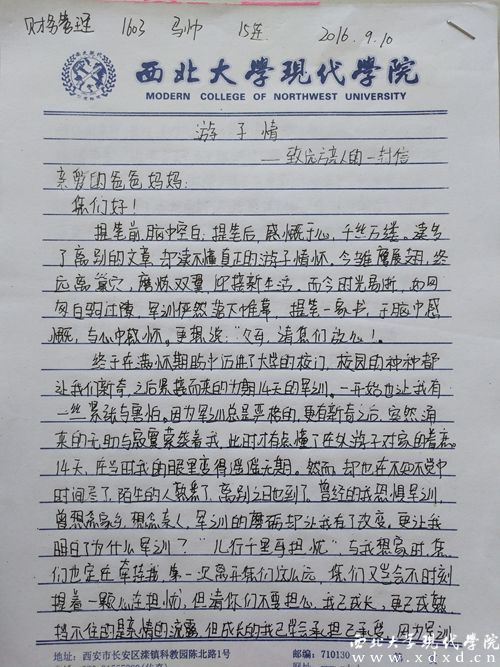 财务管理 1603 马帅 15连 2016.9.10
西北大学现代学院
MODERN COLLEGE OF NORTHWEST UNIVERSITY
游子情
——致远方亲人的一封信
亲爱的爸爸妈妈:
您们好!
提笔前,脑中空白;提笔后,感慨于心,千丝万缕。读多
了离别的文章,却读不懂真正的游子情怀。今雏鹰展翅,终
远离巢穴,磨炼双翼,迎接新生活。而今时光易逝,如同
白驹过隙,军训俨然落下帷幕,提笔一易书,于脑中感
慨,与心中感怀。更想说:“ 请您们放心!
终于在满怀期盼中迈进了大学的校门,校园的种种都
让我们新奇,之后紧接而来的为期14天的军训。一开始也让我有
一丝紧张与害怕。因为军训总是严格的,更有新奇之后,突然涌
来的无助与寂寞萦绕着我,此时才有点懂了在外游子对家的眷恋。
14天,在当时我的眼里变得遥遥无期。然而,却也在不知不觉中
时间差了,陌生的人熟悉了,离别之日也到了。曾经的我恐惧军训,
曾想念家乡,想念亲人,军训的磨砺却让我有了改变。更让我
明白了为什么军训?“儿行千里母担忧”与我想家时,您
们也定在牵挂我,第一次离开您们这么远,您们又岂会不时刻
提着一颗心在担忧,但请你们不要担心,我已成长,更已成熟
挡不住的是亲情的流露,但成长的我已学会承担 ,因为军训
地址:西安市长安区滦镇科教园陈北路1号 邮编:710130
西北大学现代学院
www.xdxd.cn